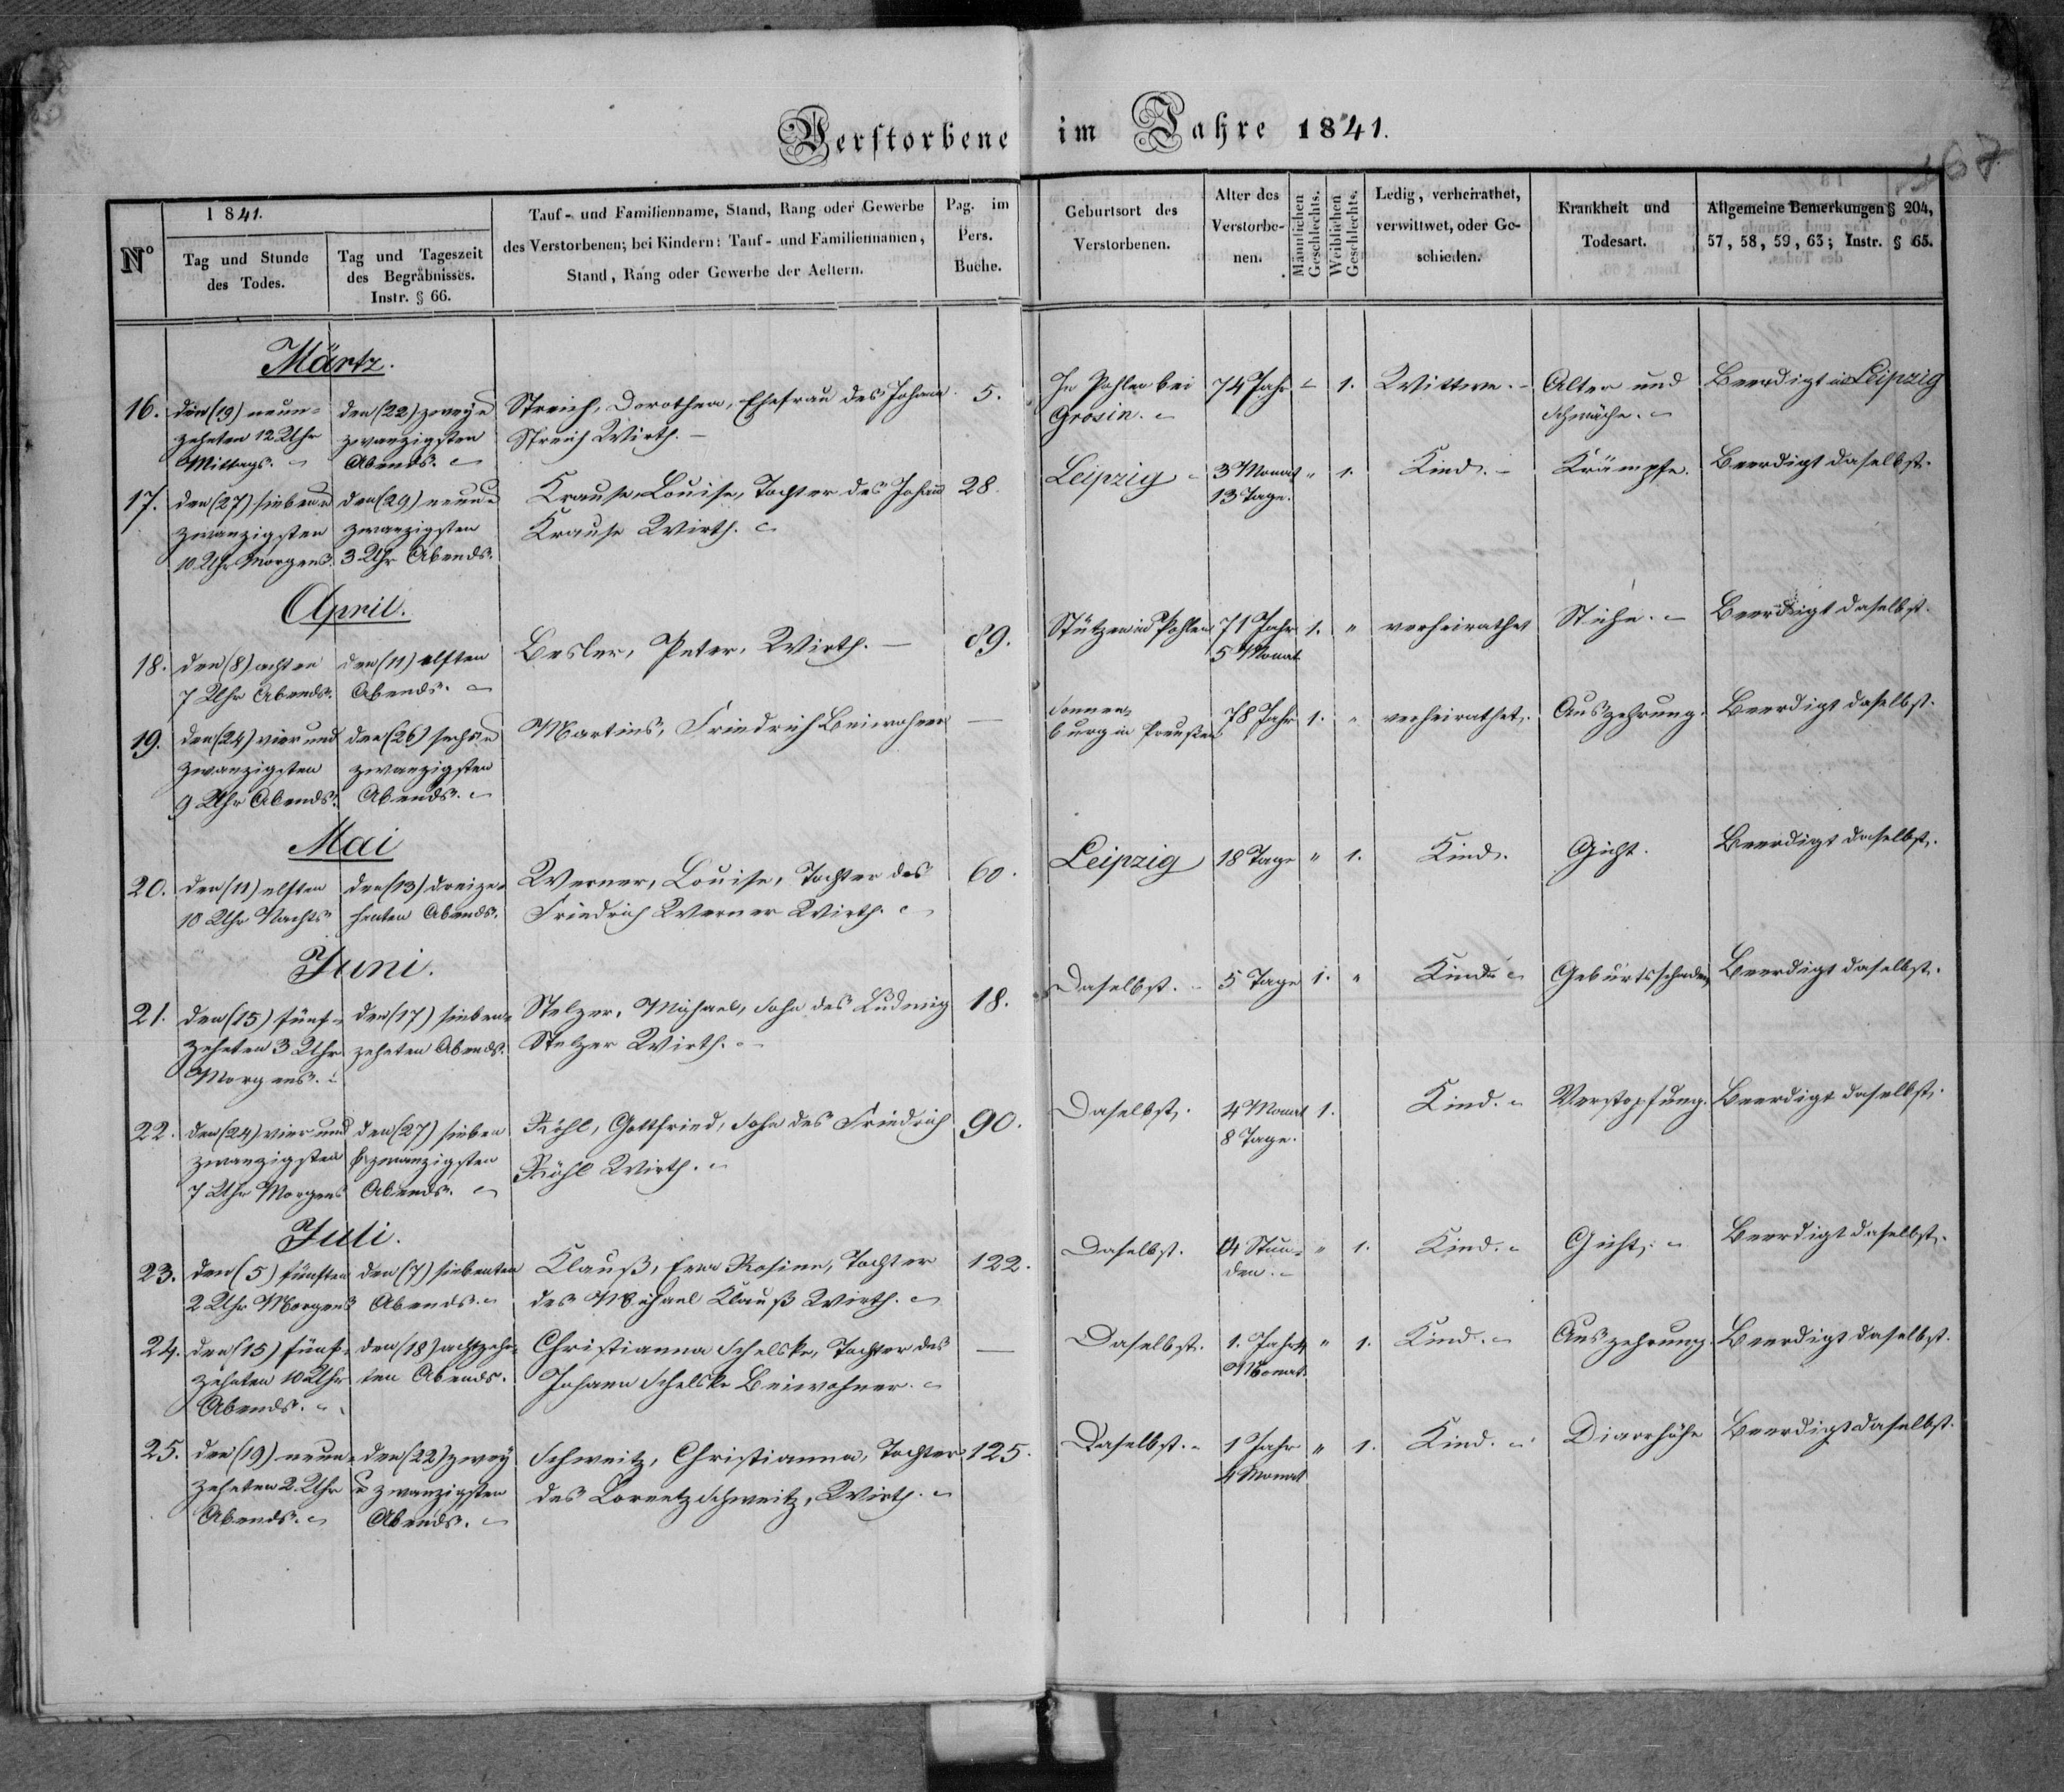 Verstorbene im Jahre 1841.
167
N°
1841.
Tag und Stunde
des Todes.
Tag und Tageszeit
des Begräbnisses.
Instr. § 66.
Tauf- und Familienname, Stand, Rang oder Gewerbe
des Verstorbenen; bei Kindern: Tauf- und Familiennamen,
Stand, Rang oder Gewerbe der Aeltern.
Pag. im
Pers.
Buche.
Geburtsort des
Verstorbenen.
Alter des
Verstorbe-
nen.
Männlichen
Geschlechts.
Weiblichen
Geschlechts.
Ledig, verheirathet,
verwittwet, oder Ge-
schieden.
Krankheit und
Todesart.
Allgemeine Bemerkungen § 204,
57, 58, 59, 63; Instr. § 65.
Märtz.
16. den (19) neun- den (22) zwey u Streich, Dorothea, Ehefrau des Johann 5. In Pohlen bei 74 Jahr " 1. Wittwe. Alter und Beerdigt in Leipzig
zehnten 12 Uhr zwanzigsten Streich Wirth. Grosin. Schwäche.
Mittags. Abends.
17. den (27) sieben u den (29) neun u Krause, Louise, Tochter des Johann 28. Leipzig 3 Monat " 1. Kind. Krämpfe. Beerdigt daselbst.
zwanzigsten zwanzigsten Krause Wirth. 13 Tage.
10 Uhr Morgens. 3 Uhr Abends.
April.
18. den (8) achten den (11) elften Besler, Peter, Wirth. — 89. in Pohlen 71 Jahr 1. " verheirathet Stiche. Beerdigt daselbst.
7 Uhr Abends. Abends. 5 Monat
19. den (24) vier und den (26) sechs u Martins, Friedrich Beiwohner — Sonnen- 78 Jahr 1. " verheirathet. Auszehrung. Beerdigt daselbst.
zwanzigsten zwanzigsten burg in Preußen
9 Uhr Abends. Abends.
Mai
20. den (11) elften den (13) dreize- Werner, Louise, Tochter des 60. Leipzig 18 Tage " 1. Kind. Gicht. Beerdigt daselbst.
10 Uhr Nachts henten Abends. Friedrich Werner Wirth.
Juni.
21. den (15) fünf- den (17) sieben- Stelzer, Michael, Sohn des Ludwig 18. Daselbst. 5 Tage 1. " Kind. Geburtsschaden Beerdigt daselbst.
zehnten 3 Uhr zehnten Abends. Stelzer Wirth.
Morgens.
22. den (24) vier und den (27) sieben Röhl, Gottfried, Sohn des Friedrich 90. Daselbst. 4 Monat 1. Kind. Verstopfung. Beerdigt daselbst.
zwanzigsten zwanzigsten Röhl Wirth. 8 Tage.
7 Uhr Morgens Abends.
Juli.
23. den (5) fünften den (7) siebenten Klauß, Eva Rosine, Tochter 122. Daselbst. Stun- " 1. Kind. Gicht. Beerdigt daselbst.
2 Uhr Morgens Abends. des Michael Klauß Wirth. den.
24. den (15) fünf- den (18) achtzehn- Christianna Schelske, Tochter des — Daselbst. 1. Jahr 4 " 1. Kind. Auszehrung. Beerdigt daselbst.
zehnten 10 Uhr ten Abends. Johann Schelske Beiwohner. Monat.
Abends.
25. den (19) neun- den (22) zwey Schweitz, Christianna, Tochter 125. Daselbst. 1 Jahr " 1. Kind. Diarrhöhe Beerdigt daselbst.
zehnten 2 Uhr u zwanzigsten des Lorentz Schweitz, Wirth. 4 Monat
Abends. Abends.